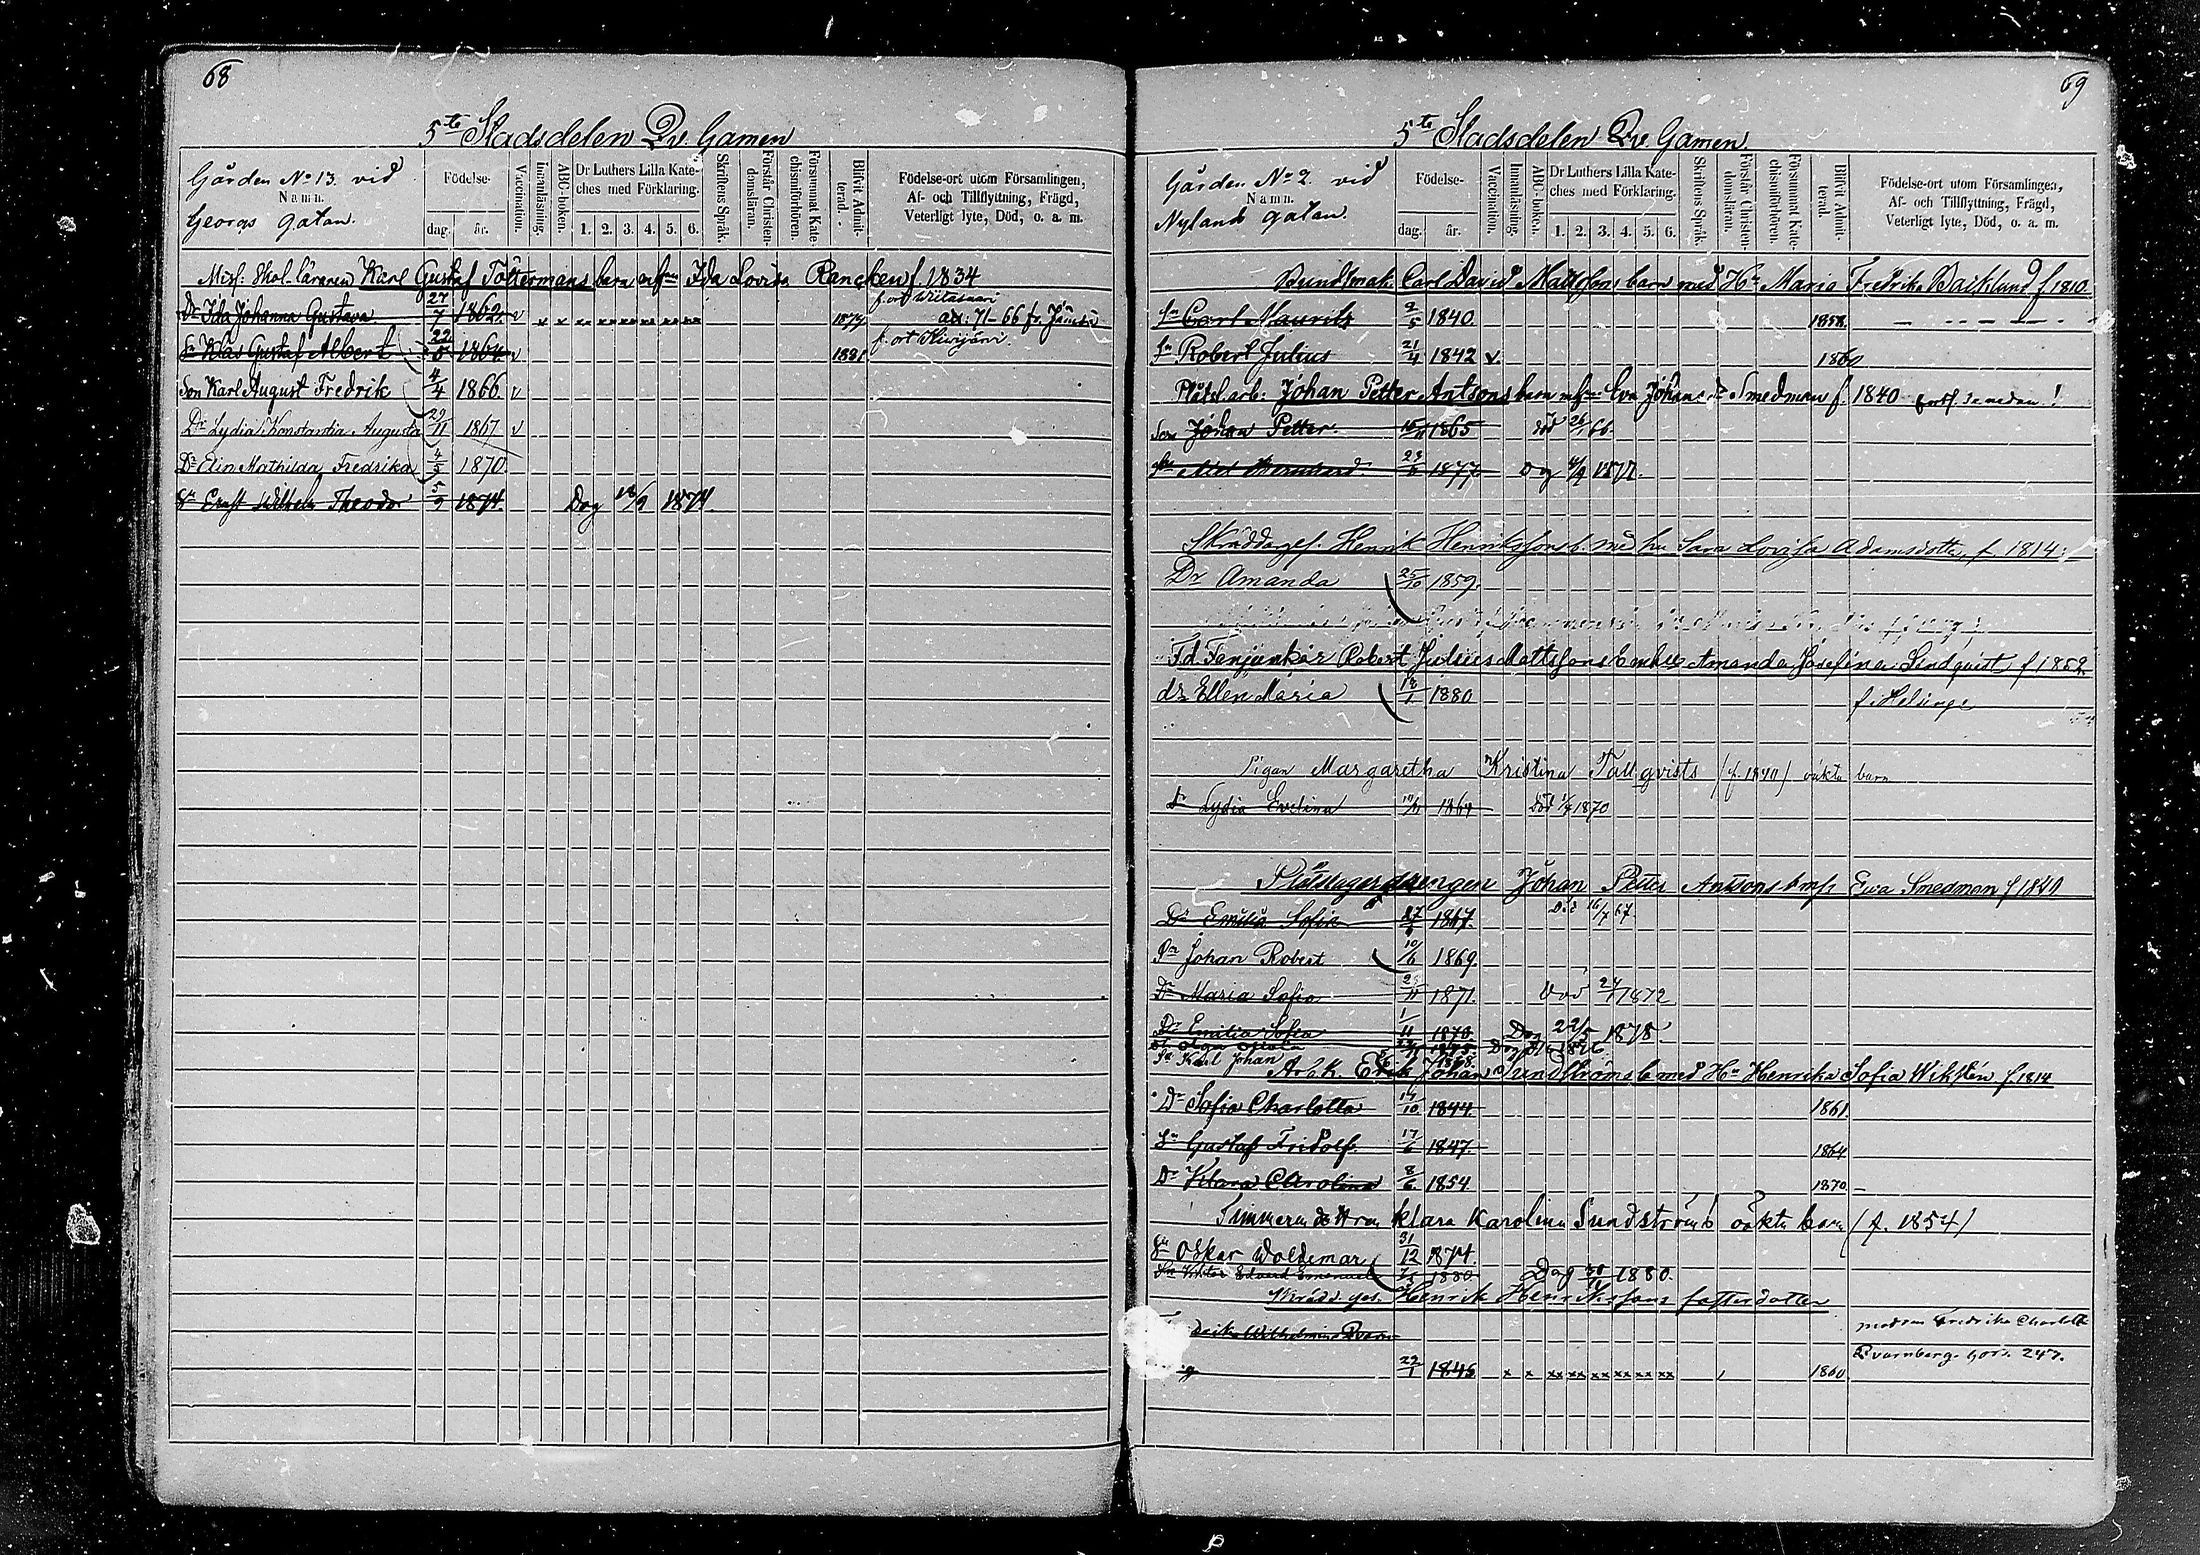 68
5te Stadsdelen Qv. Gamen
Gården No 13. vid
Namn.
Georgs gatan.
Födelse-
dag. år.
Vaccination.
Innanläsning.
ABC-boken.
Dr Luthers Lilla Kate-
ches med Förklaring.
1. 2. 3. 4. 5. 6.
Skriftens Språk.
Förstår Christen-
domsläran.
Försummat Kate-
chismiförhören.
Blifvit Admit-
terad.
Födelse-ort utom Församlingen,
Af- och Tillflyttning, Frägd,
Veterligt lyte, Död, o. a. m.
Karl Gustaf Töttermans barn m hu Ida Lovisa Rancken f. 1834
Dr Ida Johanna Gustava 27/7 1862 v 1879 f. ort Wiitasaari
att: 71-66 fr.
Sn Klas Gustaf Albert 1864 v 1881 f. ort Kivijärvi.
Son Karl August Fredrik 4/4 1866. v
Dr Lydia Konstantia Augusta 29/11 1867 v
Dr Elin Mathilda Fredrika 1870.
Sn Ernst Wilhelm Theodor 5/9 1874. Dog 18/9 1874.
69
5te Stadsdelen Qv. Gamen
Gården No 2. vid
Namn.
Nylands gatan.
Födelse-
dag. år.
Vaccination.
Innanläsning.
ABC-boken.
Dr Luthers Lilla Kate-
ches med Förklaring.
1. 2. 3. 4. 5. 6.
Skriftens Språk.
Förstår Christen-
domsläran.
Försummat Kate-
chismiförhören.
Blifvit Admit-
terad.
Födelse-ort utom Församlingen,
Af- och Tillflyttning, Frägd,
Veterligt lyte, Död, o. a. m.
Buntmak. Carl David Mattssons barn med Hu Maria Fredrik Backlund f 1810
Sn Carl Maurits 2/5 1840. 1858.
Sn Robert Julius 21/4 1842 v. 1860
Johan Petter Antsons barn m hu Eva Johans dr Smedman f. 1840 forts. se nedan!
Son Johan Petter. 1865 död 26/1 66.
1877
Skräddarges. Henrik Henrikssons b. med hu Sara Lovisa Adamsdotter f. 1814
Dr Amanda 25/10 1859.
Fd Fanjunkar Robert Julius Mattssons b m hu Amanda Josefina Lindqvist f 1852
dr Ellen Maria 18/1 1880 f. Helsingf
Pigan Margaretha Kristina Tallqvists (f. 1840) oäkta barn
dr Lydia Evelina 1864 död 1/4 1870
Johan Petter Antsons b m h Eva Smedman f 1840
Dr Emilia Sofia 1867. Död 16/7 67.
Sn Johan Robert 10/6 1869.
Dr Maria Sofia 1871. Död 24/1 1872
Dr Emilia Sofia 1/11 1870 Dog 22/5 1878.
Sn Karl Johan
Arbk. Erik Johan Sundströms b med Hu Henrika Sofia Wiksten f. 1814
Dr Sofia Charlotta 14/10 1844. 1861
Sn Gustaf Fridolf. 17/6 1847. 1864
Dr Klara Carolina 8/6. 1854 1870
Klara Karolina Sundströms oäkta barn (f. 1854)
Sn Oskar Woldemar 31/12 1874.
Sn Viktor Edvard Emanuel 1880 Dog 1880.
Skrädd. ges. Henrik Henrikssons fosterdotter
Wilhelmina modren Fredrika Charlott
Qvarnberg. 247.
29/1 1846 1860